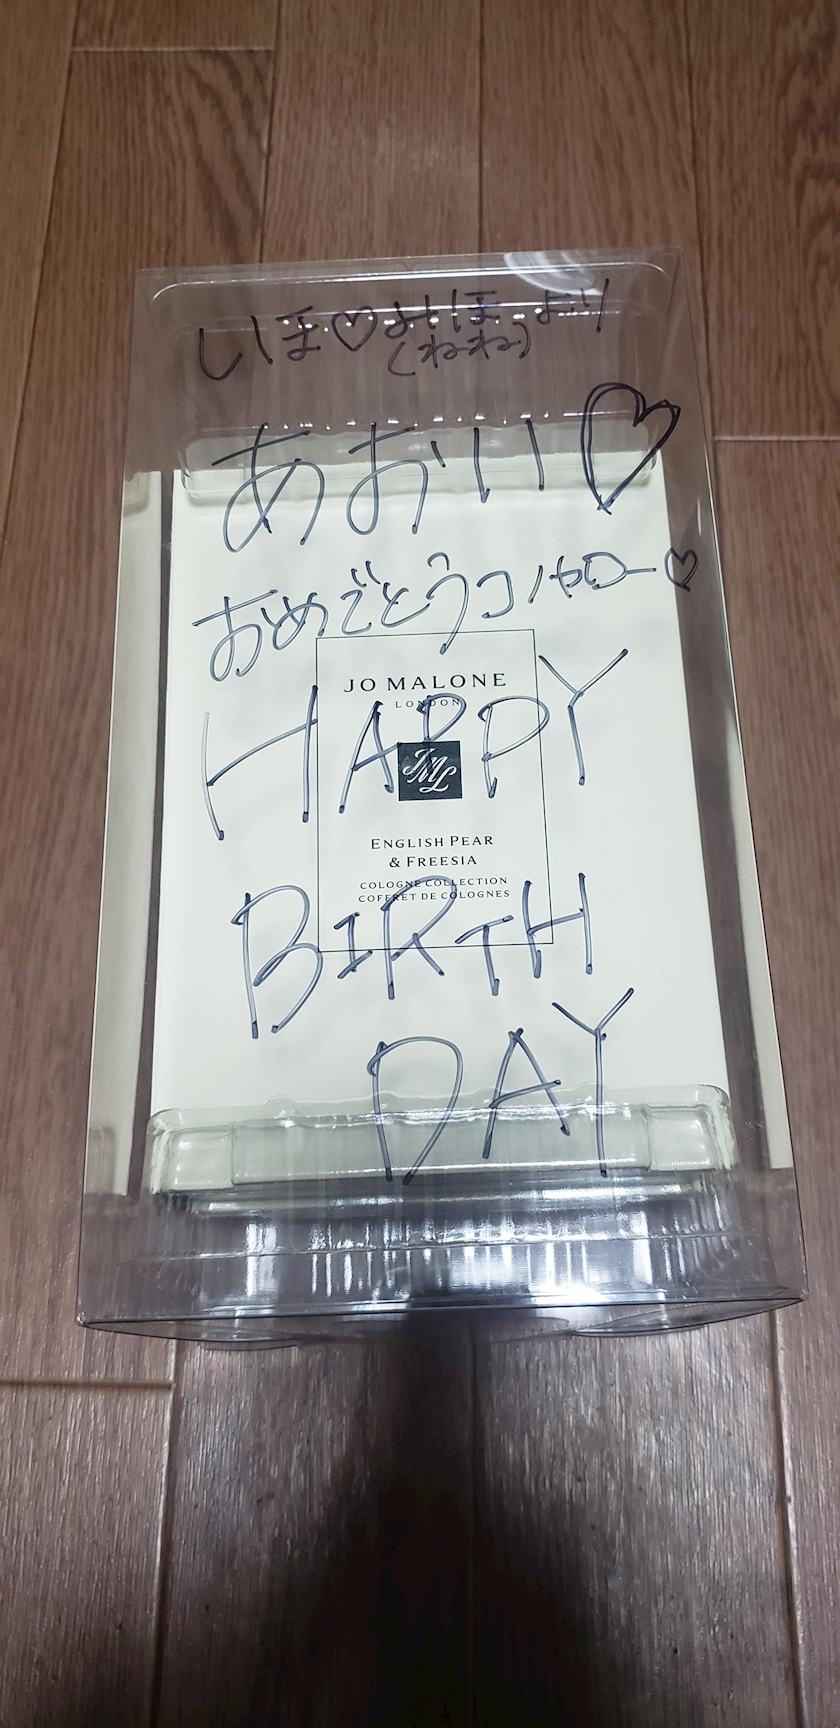 しほ♡みほより
(ねね)
あおい♡
おめでとうコノヤロー♡
JO MALONE
LONDON
HAPPY
JML
ENGLISH PEAR
& FREESIA
COLOGNE COLLECTION
COFFRET DE COLOGNES
BIRTH
DAY